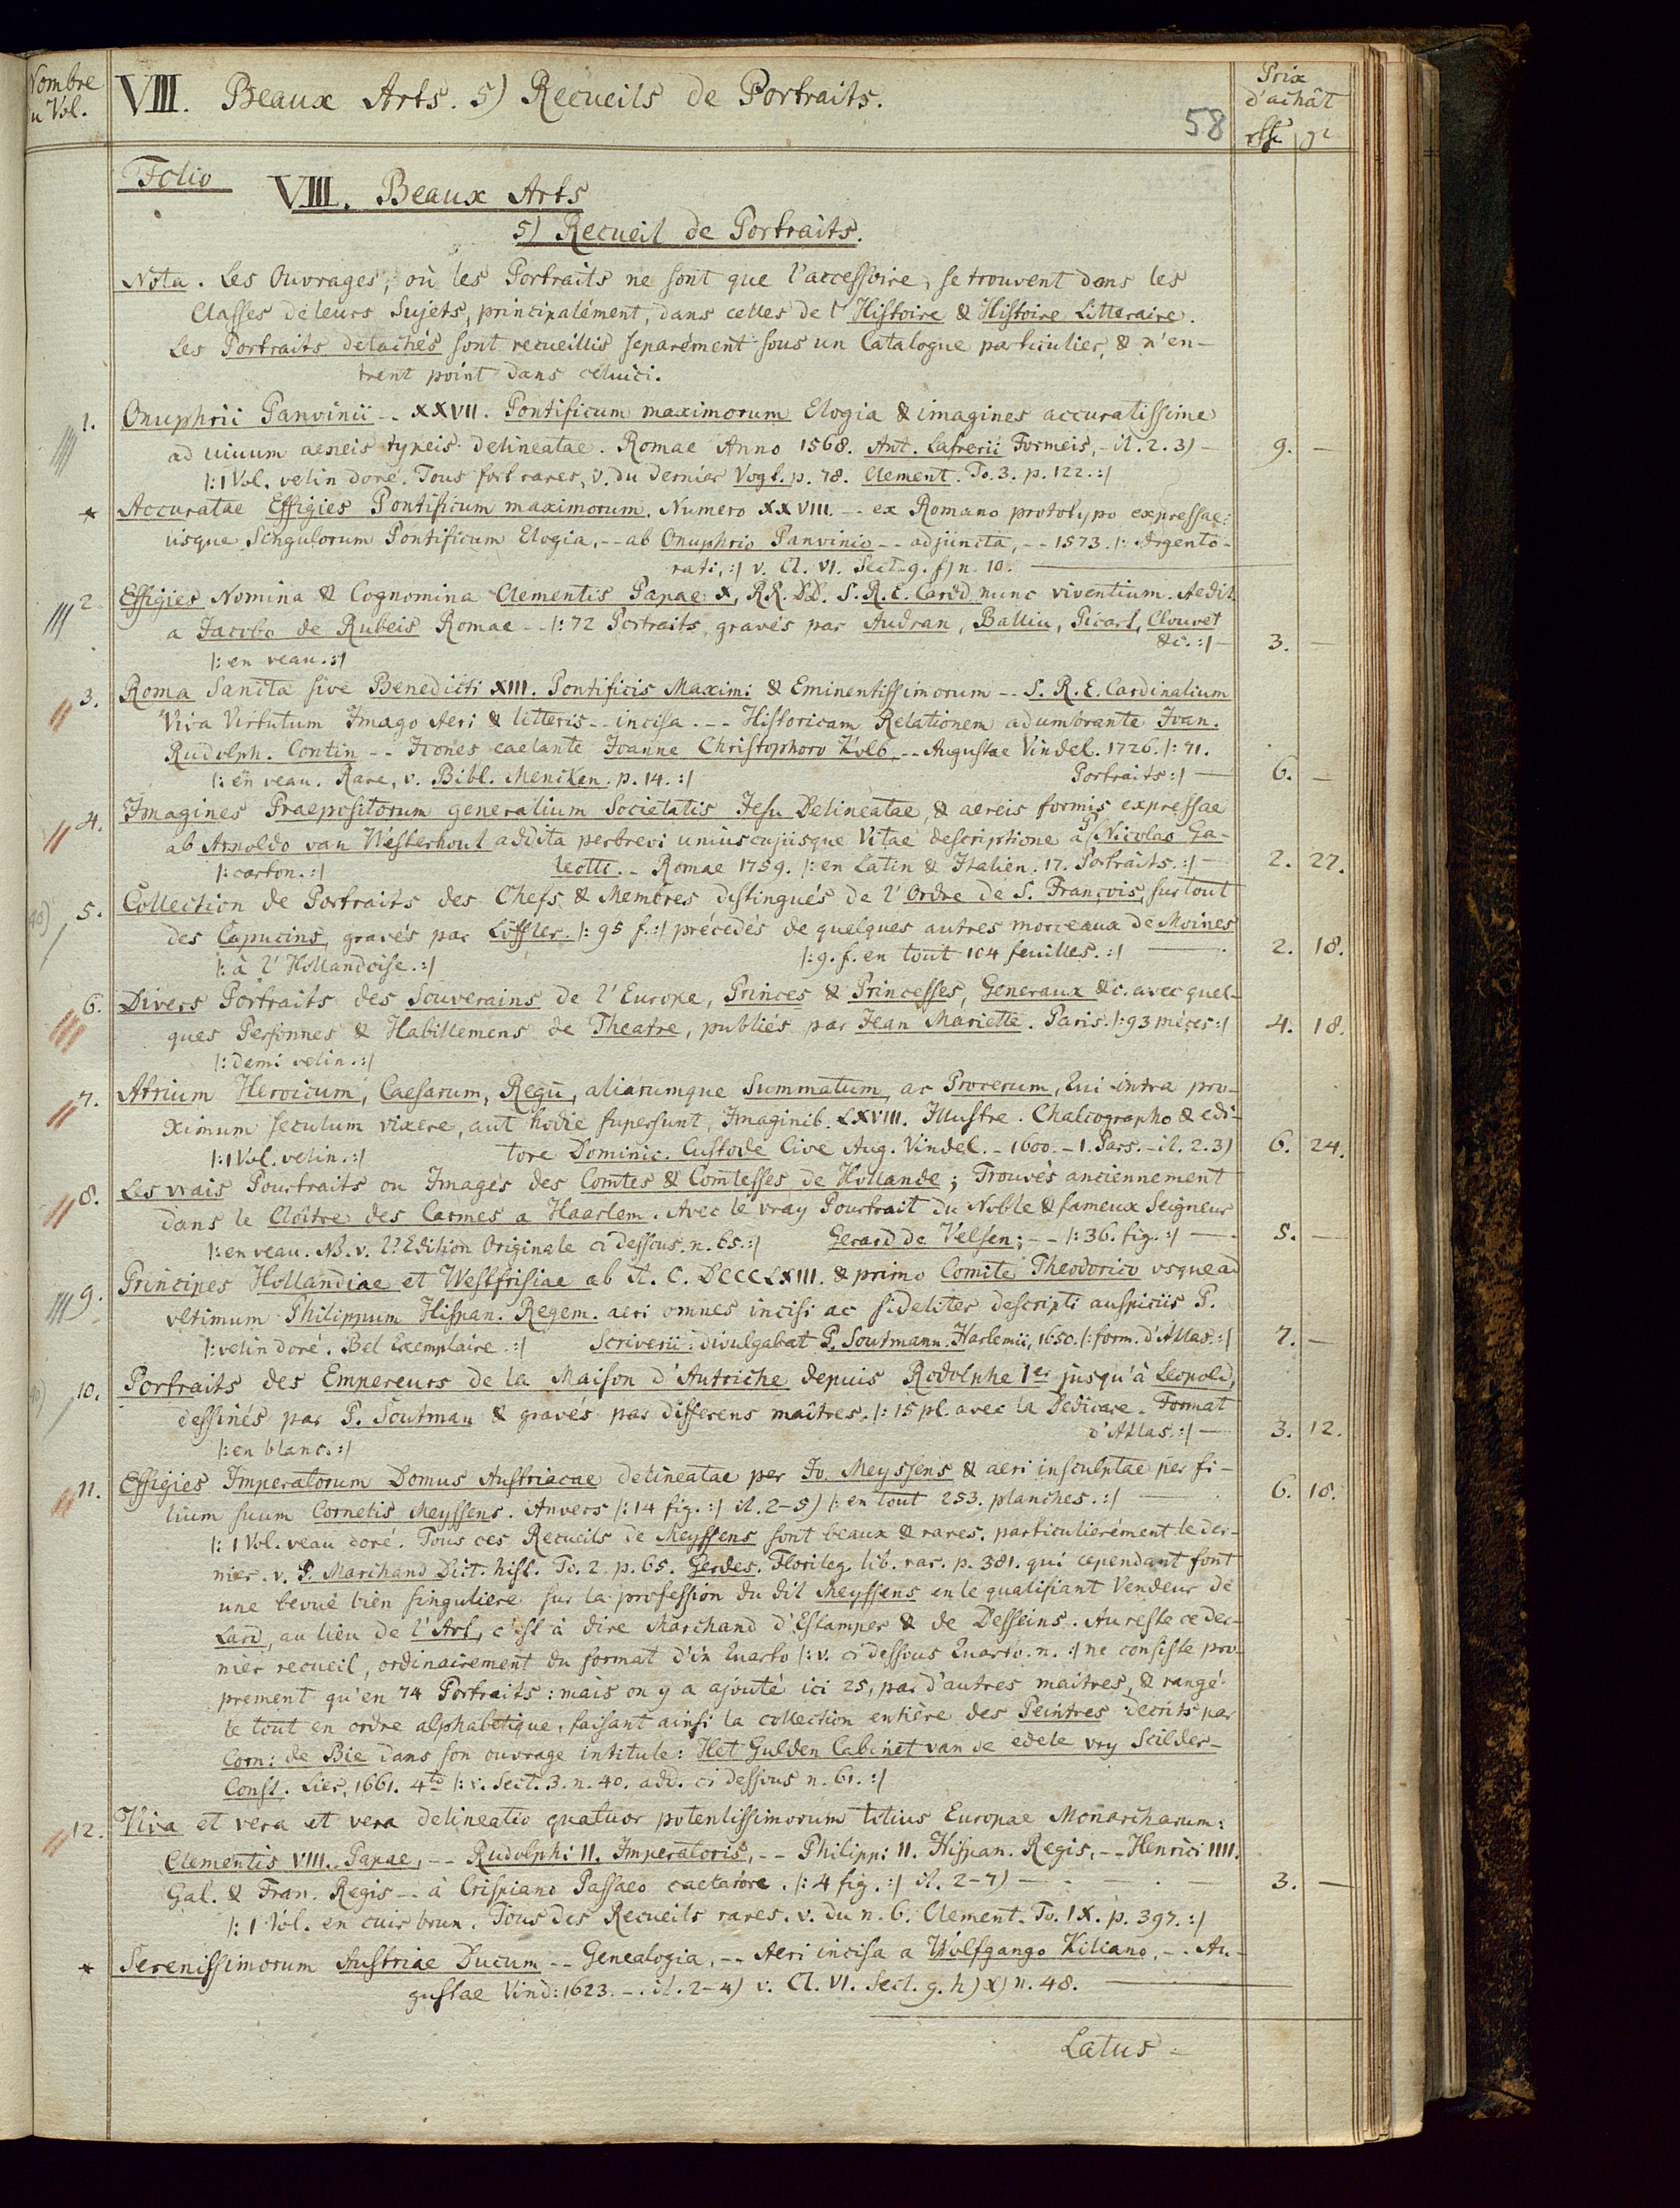 Nombre
du Vol.
VIII. Beaux Arts. 5) Recueils de Portraits.
58
Prix
d'achât
rthl gr
Folio
VIII. Beaux Arts
5) Recueil de Portraits.
Nota. Les Ouvrages, où les Portraits ne sont que l'accessoire, se trouvent dans les
Classes de leurs Sujets, principalément, dans celles de l'Histoire & Histoire Litteraire.
Les Portraits detachés sont recueillis separément sous un Catalogue particulier, & n'en-
trent point dans celuici.
1. Onuphrii Panvinii -- XXVII. Pontificum maximorum Elogia & imagines accuratissime
ad uiuum aeneis typeis delineatae. Romae Anno 1568. Ant. Lafrerii Formeis, - it. 2. 3) - 9. -
|: 1 Vol. velin doré. Tous fort rares, v. du dernier Vogt. p. 78. Clement. To. 3. p. 122. :|
* Accuratae Effigies Pontificum maximorum, Numero XXVIII. -- ex Romano prototypo expressae:
usque Singulorum Pontificum Elogia, -- ab Onuphrio Panvinio -- adjuncta, -- 1573. |: Argento-
rati, :| v. Cl. VI. Sect. 9. f) n. 10.
2. Effigies Nomina & Cognomina Clementis Papae X, RR. DD. S. R. E. Cardd nunc viventium. Aedit.
a Jacobo de Rubeis Romae -- |: 72 Portraits, gravés par Audran, Balliu, Picart, Clouvet
&c. :| - 3. -
|: en veau. :|
3. Roma Sancta sive Benedicti XIII. Pontificis Maximi & Eminentissimorum -- S. R. E. Cardinalium
Viva Virtutum Imago Aeri & litteris -- incisa. -- Historicam Relationem adumbrante Ioan.
Rudolph. Contin -- Icones caelante Ioanne Christophoro Kolb. -- Augustae Vindel. 1726. |: 71.
|: en veau. Rare, v. Bibl. Mencken. p. 14. :| Portraits :| - 6. -
4. Imagines Praepositorum generalium Societatis Jesu Delineatae & aereis formis expressae
ab Arnoldo van Westerhout addita perbrevi uniuscujusque Vitae descriptione a P. Nicolao Ga-
|: carton. :| leotti. - Romae 1759. |: en Latin & Italien. 17. Portraits. :| - 2. 27.
5. Collection de Portraits des Chefs & Membres distingués de l'Ordre de S. François, surtout
des Capucins, gravés par Löffler. |: 95 f. :| précédés de quelques autres morceaux de Moines
|: à l'Hollandoise. :| |: 9. f. en tout 104 feuilles. :| - 2. 18.
6. Divers Portraits des Souverains de l'Europe, Princes & Princesses, Generaux &c. avec quel-
ques Personnes & Habillemens de Theatre, publiés par Jean Mariette. Paris. |: 93 pièces :| 4. 18.
|: demi velin. :|
7. Atrium Heroicum, Caesarum, Regū, aliarumque Summatum, ac Procerum, Qui intra pro-
ximum seculum vixere, aut hodie supersunt, Imaginib. LXVIII. Illustre. Chalcographo & edi-
|: 1 Vol. velin. :| tore Dominic. Custode Cive Aug. Vindel. - 1600. - 1. Pars. - it. 2. 3) 6. 24.
8. Les vrais Pourtraits ou Images des Comtes & Comtesses de Hollande; Trouvés anciennement
dans le Cloître des Carmes a Haarlem. Avec le vray Pourtrait du Noble & fameux Seigneur
|: en veau. NB. v. l'Edition Originale ci dessous. n. 65. :| Gerard de Velsen; -- |: 36. fig. :| - 5. -
9. Principes Hollandiae et Westfrisiae ab A. C. DCCCLXIII. & primo Comite Theodorico usque ad
vltimum Philippum Hispan. Regem. aeri omnes incisi ac fideliter descripti auspiciis P.
|: velin doré. Bel Exemplaire. :| Scriverii: divulgabat P. Soutmann. Harlemii, 1650. |: form. d'Atlas. :| 7. -
10. Portraits des Empereurs de la Maison d'Autriche depuis Rodolphe 1er jusqu'à Leopold,
dessinés par P. Soutman & gravés par differens maîtres. |: 15 pl. avec la Dedicace. Format
d'Atlas. :| - 3. 12.
|: en blanc. :|
11. Effigies Imperatorum Domus Austriacae delineatae per Jo. Meyssens & aeri insculptae per fi-
lium suum Cornelis Meyssens. Anvers |: 14 fig. :| it. 2-5) |: en tout 253. planches. :| - 6. 18.
|: 1 Vol. veau doré. Tous ces Recueils de Meyssens sont beaux & rares. particulièrément le der-
nier. v. P. Marchand Dict. hist. To. 2. p. 65. Gerdes. Florileg. lib. rar. p. 381. qui cependant font
une bevuë bien singuliere sur la profession du dit Meyssens en le qualifiant Vendeur de
Lard, au lieu de l'Art, c'est à dire Marchand d'Estampes & de Desseins. Au reste ce der-
nier recueil, ordinairement du format d'in Quarto |: v. ci dessous Quarto. n. :| ne consiste pro-
prement qu'en 74 Portraits: mais on y a ajouté ici 25, par d'autres maitres, & rangé
le tout en ordre alphabetique, faisant ainsi la collection entière des Peintres decrits par
Corn: de Bie dans son ouvrage intitule: Het Gulden Cabinet van de edele vry Scilder-
Const. Lier, 1661. 4to |: v. Sect. 3. n. 40. add. ci dessous n. 61. :|
12. Viva et vera et vera delineatio quatuor potentissimorum totius Europae Monarcharum:
Clementis VIII. Papae, -- Rudolphi II. Imperatoris, -- Philippi II. Hispan. Regis, -- Henrici IIII.
Gal. & Fran. Regis -- à Crispiano Passaeo caelatore. |: 4 fig. :| it. 2-7) - 3. -
|: 1 Vol. en cuir brun. Tous des Recueils rares. v. du n. 6. Clement. To. IX. p. 397. :|
* Serenissimorum Austriae Ducum -- Genealogia, -- Aeri incisa a Wolfgango Kiliano, -- Au-
gustae Vind: 1623. -. it. 2-4) v. Cl. VI. Sect. 9. h) x) n. 48.
Latus -